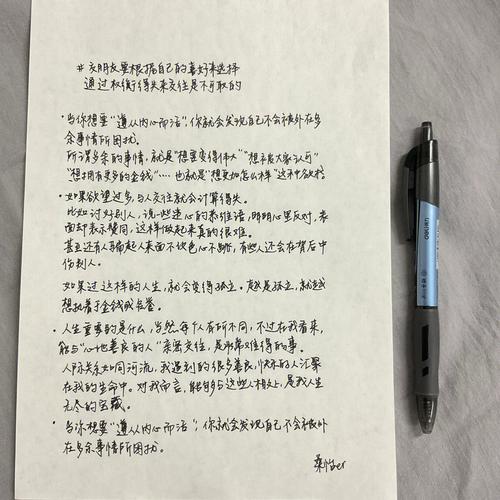 #交朋友要根据自己的喜好来选择
通过权衡得失来交往是不可取的
·当你想要"遵从内心而活",你就会发现自己不会被外在多
余事情所困扰。
所谓多余的事情,就是"想要变得伟大""想被大家认可"
"想拥有更多的金钱"……也就是"想更加怎么样"这种欲松
·如果欲望过多,与人交往就会计算得失。
比如讨好别人,说一些违心的恭维话,明明心里反对,表
面却表示赞同,这样做起来真的很难。
甚至还有人骗起人来面不改色心不跳,有些人还会在背后中
伤别人。
如果过这样的人生,就会变得孤立。越是孤立,就越
想执着于金钱或名誉。
·人生重要的是什么,当然每个人有所不同,不过在我看来,
能与"心地善良的人"亲密交往,是非常难得的事。
人际关系如同河流,我遇到的很多善良,快乐的人汇聚
在我的生命中。对我而言,能够与这些人相交上,是我人生
无尽的宝藏。
·当你想要"遵从内心而活",你就会发现自己不会被外
在多余事情所困扰。
deli